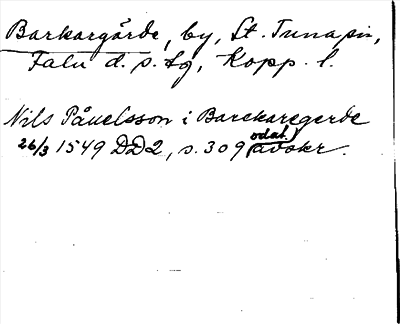 Barkargärde, by, St. Tuna sn,
Falu d. s. lg, Kopp. l.
Nils Påuelsson i Barckaregerde
odat.
26/3 1549 DD2, s. 309 avskr.